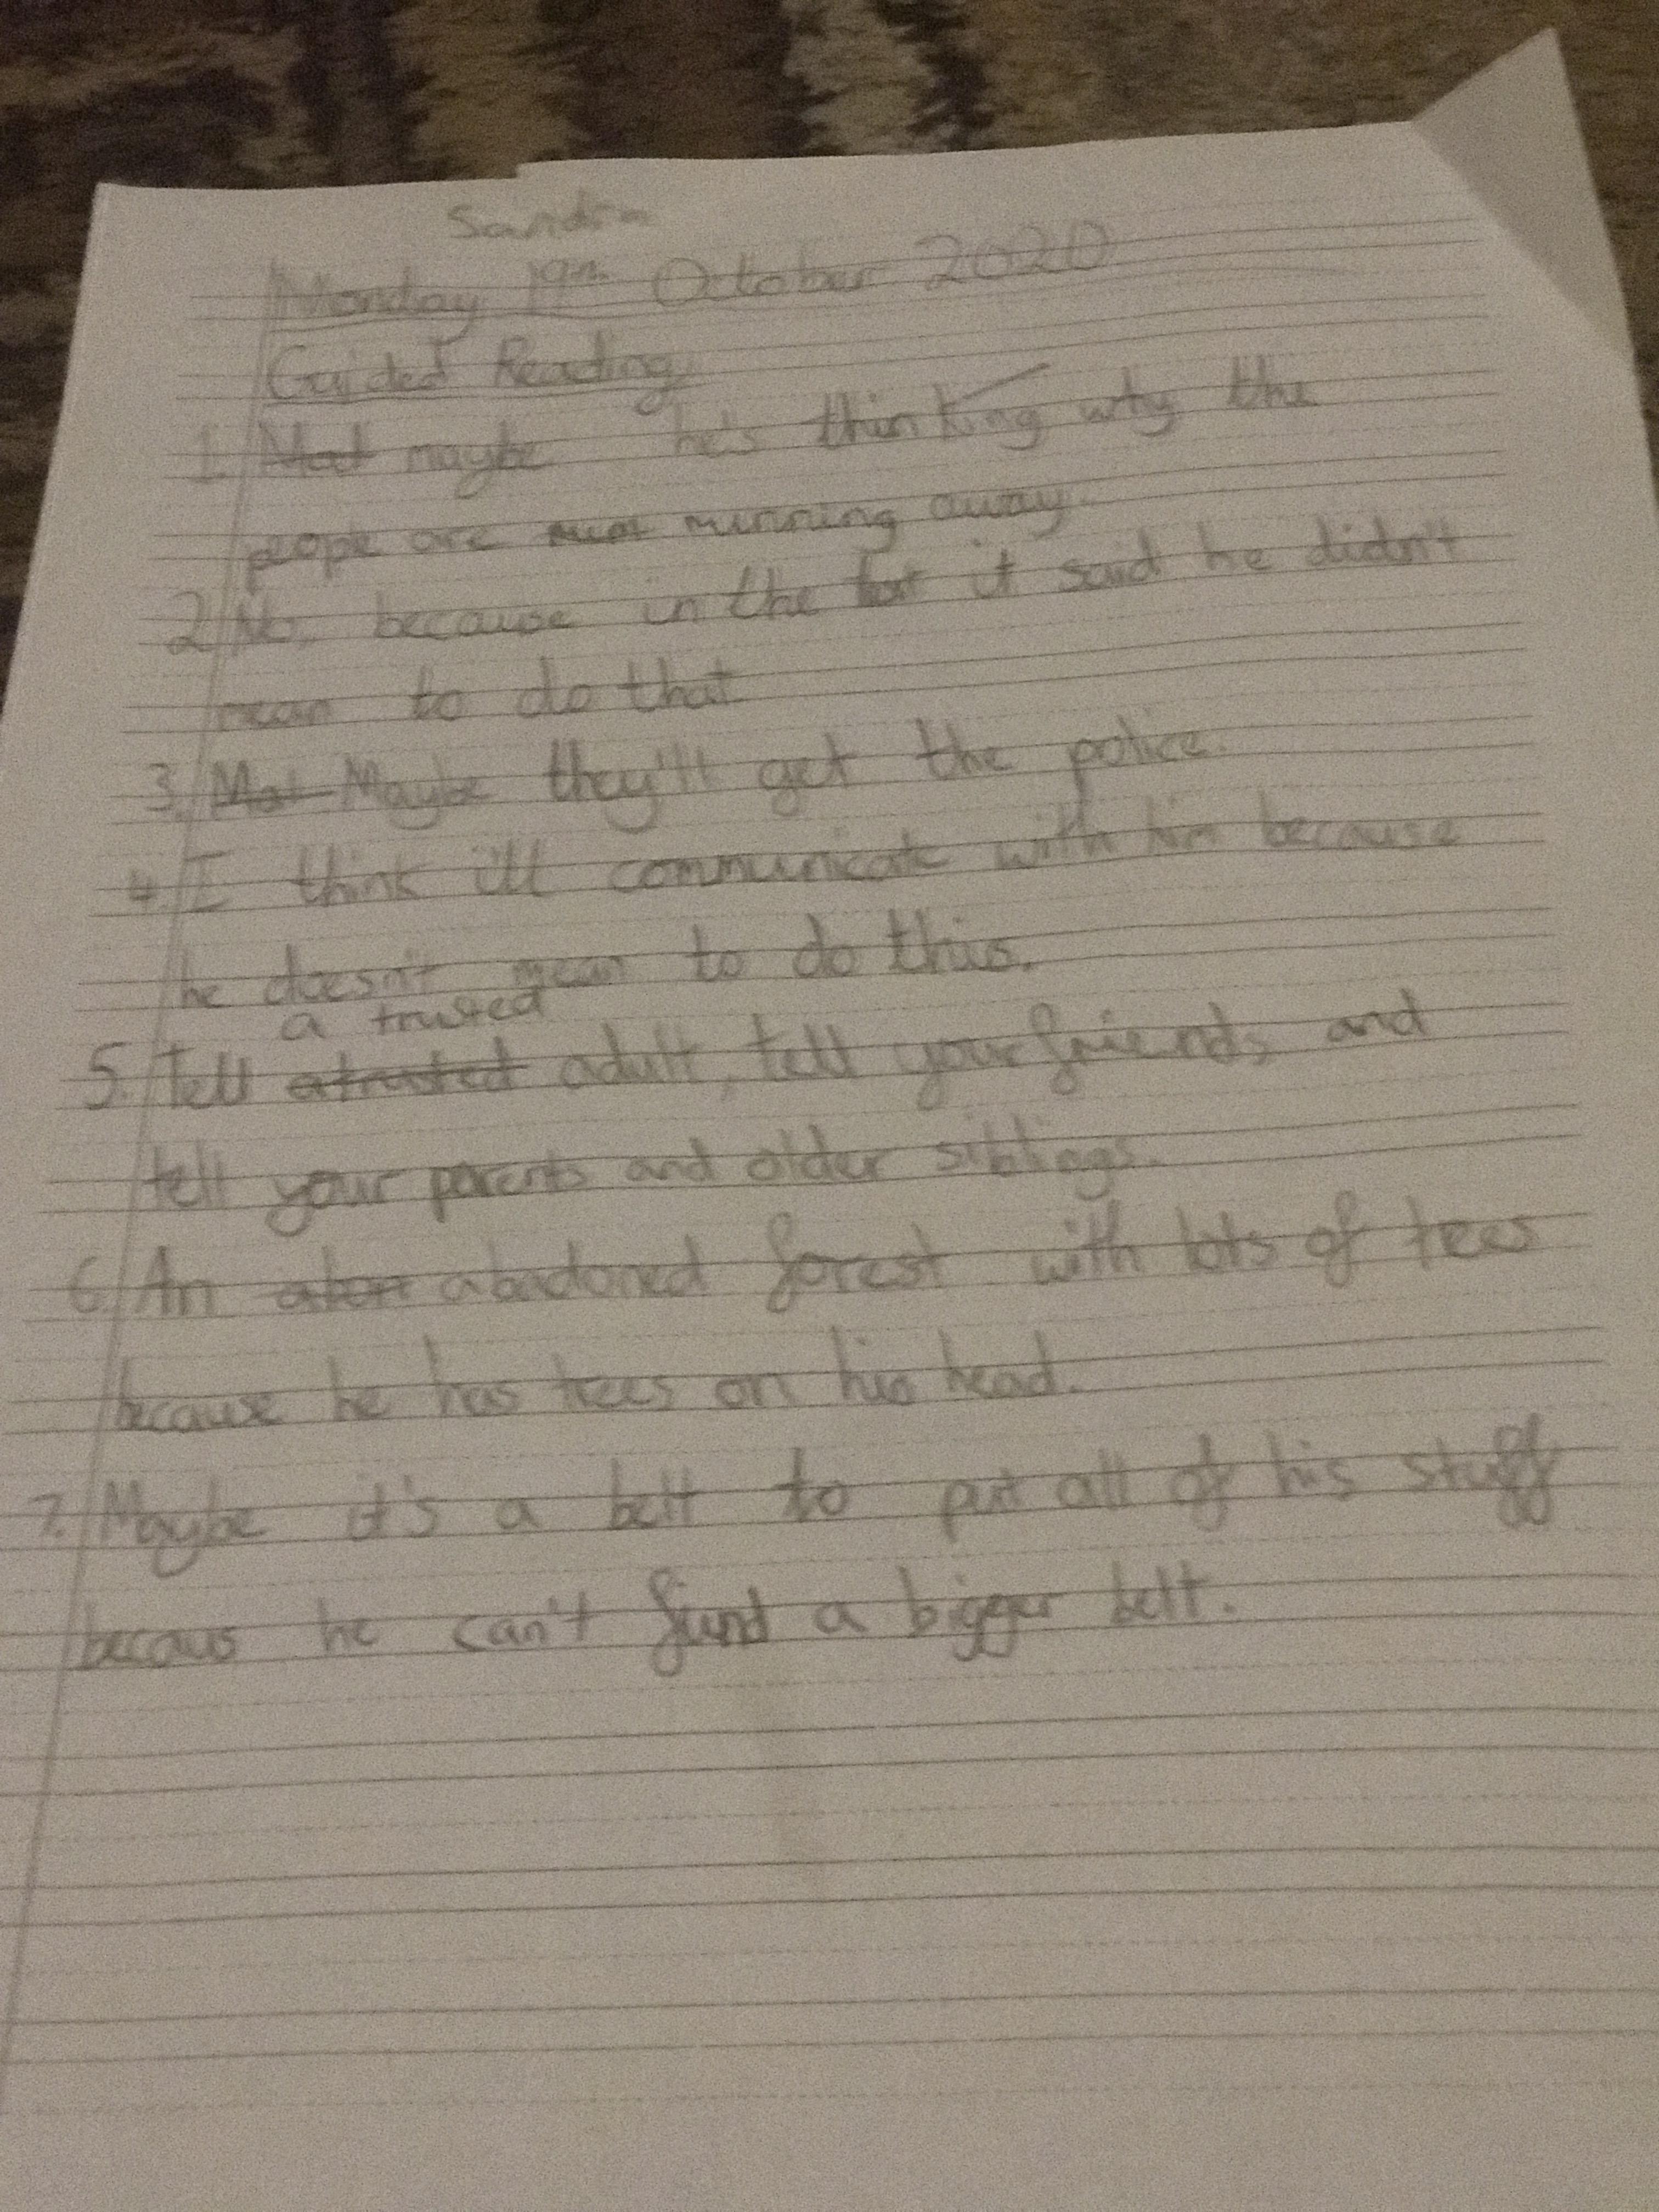 Sandra
Monday 19th October 2020
Guided Reading
1. Mat maybe he's thinking why the
people are runi running away.
2 No, because in the text it said he didn't
mean to do that
3. Mat Maybe they'll get the police.
4. I think i'll communicate with him because
he doesn't mean to do this.
a trusted
5. Tell atrusted adult, tell your friends, and
tell your parents and older siblings.
6. An abon abadoned forest with lots of trees
because he has trees on his head.
7. Maybe it's a belt to put all of his stuff
becaus he can't find a bigger belt.